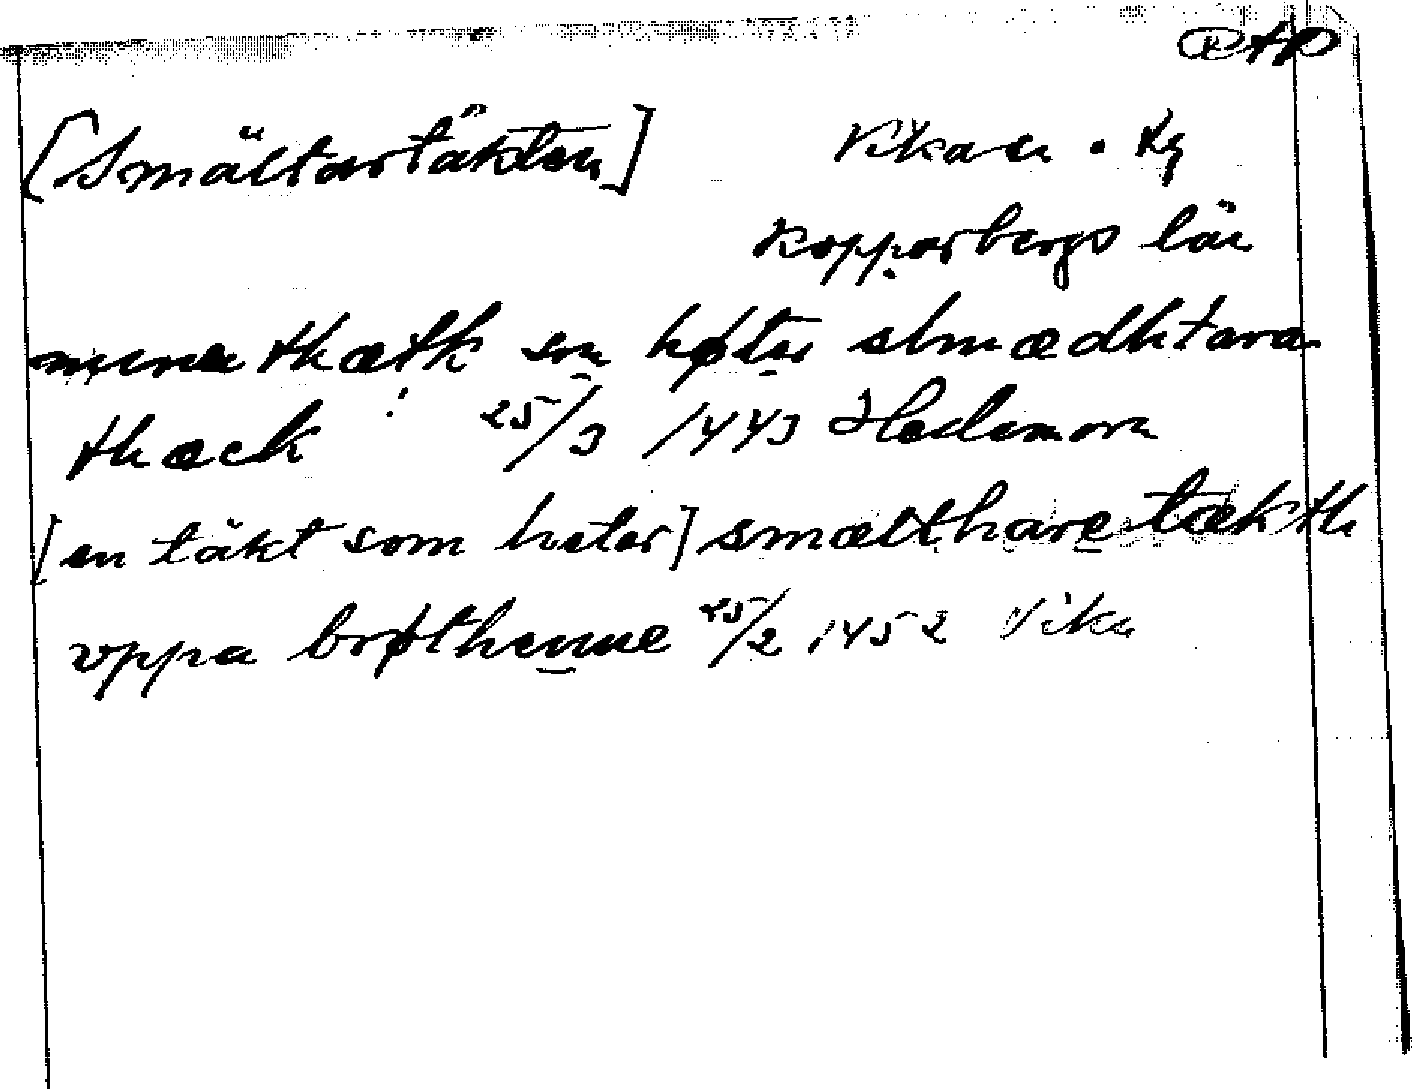 [Smältartäkten]
Vika sn. Kg
Kopparbergs län
minne thætk som høter slmædhtara
thæck ! 25/3 1443 Hedemora
[en täkt som heter] smælthare tækth
vppa brøthenne 25/2 1452 Vika